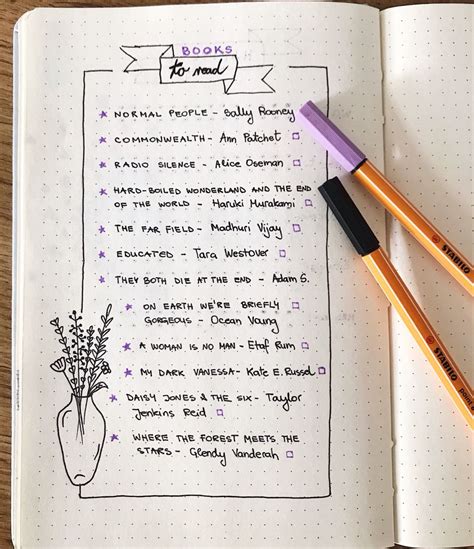 BOOKS
to read
NORMAL PEOPLE - Sally Rooney
COMMONWEALTH - Ann Patchet
RADIO SILENCE - Alice Oseman
HARD-BOILED WONDERLAND AND THE END
OF THE WORLD - Haruki Murakami
THE FAR FIELD - Madhuri Vijay
EDUCATED - Tara Westover
THEY BOTH DIE AT THE END - Adam S.
ON EARTH WE'RE BRIEFLY
GORGEOUS - Ocean Vuong
A WOMAN IS NO MAN - Etaf Rum
MY DARK VANESSA - Kate E. Russel
DAISY JONES & THE SIX - Taylor
Jenkins Reid
WHERE THE FOREST MEETS THE
STARS - Glendy Vanderah
STABILO
STABILO